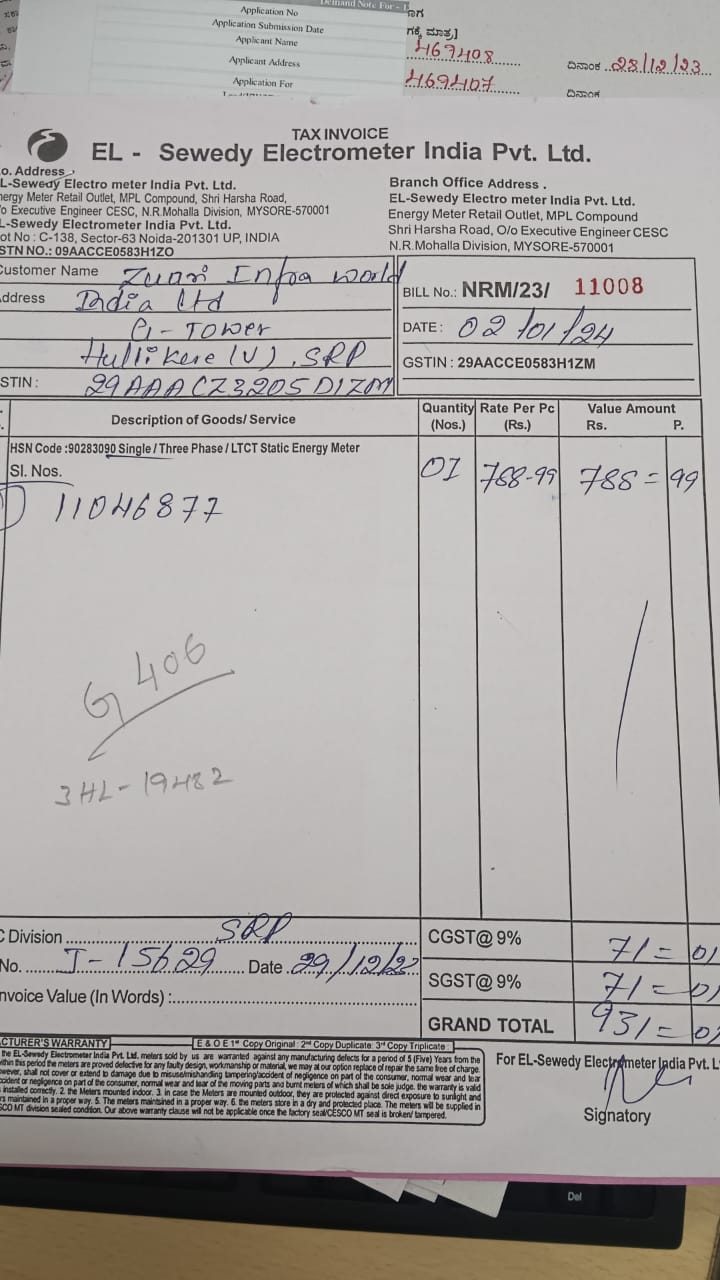 Demand Note For -
Application No
Application Submission Date
Applicant Name
Applicant Address
Application For
ಗಕ್ಕೆ ಮಾತ್ರ]
469408
469407
ದಿನಾಂಕ 28/12/23
ದಿನಾಂಕ
TAX INVOICE
EL - Sewedy Electrometer India Pvt. Ltd.
o. Address
L-Sewedy Electro meter India Pvt. Ltd.
nergy Meter Retail Outlet, MPL Compound, Shri Harsha Road,
o Executive Engineer CESC, N.R.Mohalla Division, MYSORE-570001
L-Sewedy Electrometer India Pvt. Ltd.
ot No : C-138, Sector-63 Noida-201301 UP, INDIA
STN NO.: 09AACCE0583H1ZO
Branch Office Address .
EL-Sewedy Electro meter India Pvt. Ltd.
Energy Meter Retail Outlet, MPL Compound
Shri Harsha Road, O/o Executive Engineer CESC
N.R.Mohalla Division, MYSORE-570001
Customer Name Zuari Infra World
ddress India Ltd
G-Tower
Hullikere (V), SRP
STIN : 29AAACZ3205D1ZM
BILL No.: NRM/23/ 11008
DATE: 02/01/24
GSTIN : 29AACCE0583H1ZM
Description of Goods/ Service
Quantity (Nos.)
Rate Per Pc (Rs.)
Value Amount
Rs. P.
HSN Code :90283090 Single / Three Phase / LTCT Static Energy Meter
Sl. Nos.
11046877
01 788-99 788=99
G 406
3HL-19482
C Division SRP
No. I-15629 Date 29/12/23
nvoice Value (In Words) :
CGST@ 9% 71=01
SGST@ 9% 71=01
GRAND TOTAL 931=01
CTURER'S WARRANTY E & O E 1st Copy Original : 2nd Copy Duplicate: 3rd Copy Triplicate :
the EL-Sewedy Electrometer India Pvt. Ltd. meters sold by us are warranted against any manufacturing defects for a period of 5 (Five) Years from the
ithin this period the meters are proved defective for any faulty design, workmanship or material, we may at our option replace of repair the same free of charge.
wever, shall not cover or extend to damage due to misuse/mishandling tampering/accident of negligence on part of the consumer, normal wear and tear
cident or negligence on part of the consumer, normal wear and tear of the moving parts and burnt meters of which shall be sole judge. the warranty is valid
installed correctly. 2. the Meters mounted indoor. 3. in case the Meters are mounted outdoor, they are protected against direct exposure to sunlight and
rs maintained in a proper way. 5. The meters maintained in a proper way. 6. the meters store in a dry and protected place. The meters will be supplied in
SCO MT division sealed condition. Our above warranty clause will not be applicable once the factory seal/CESCO MT seal is broken/ tampered.
For EL-Sewedy Electrometer India Pvt. L
Signatory
Del